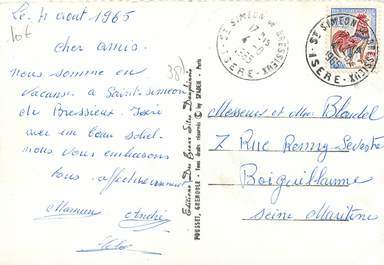 Le 4 août 1965
lot
38
cher amis.
nous somme en
vacance a Saint-simeon
de Bressieux. Isère
avec un beau soleil.
nous vous embrassons
tous. affectueusement
André
Editions Des Beaux Sites Dauphinois
POUSSET, GRENOBLE - Tous droits réservés © by SPADEM - Paris
ST SIMEON DE BRESSIEUX
17 H
4 - 8
1965
ISERE
ST SIMEON DE BRESSIEUX
1965
ISERE
Messieurs et Mme Blondel
7 Rue Remy-Sevestre
Boiguillaume
Seine Maritime